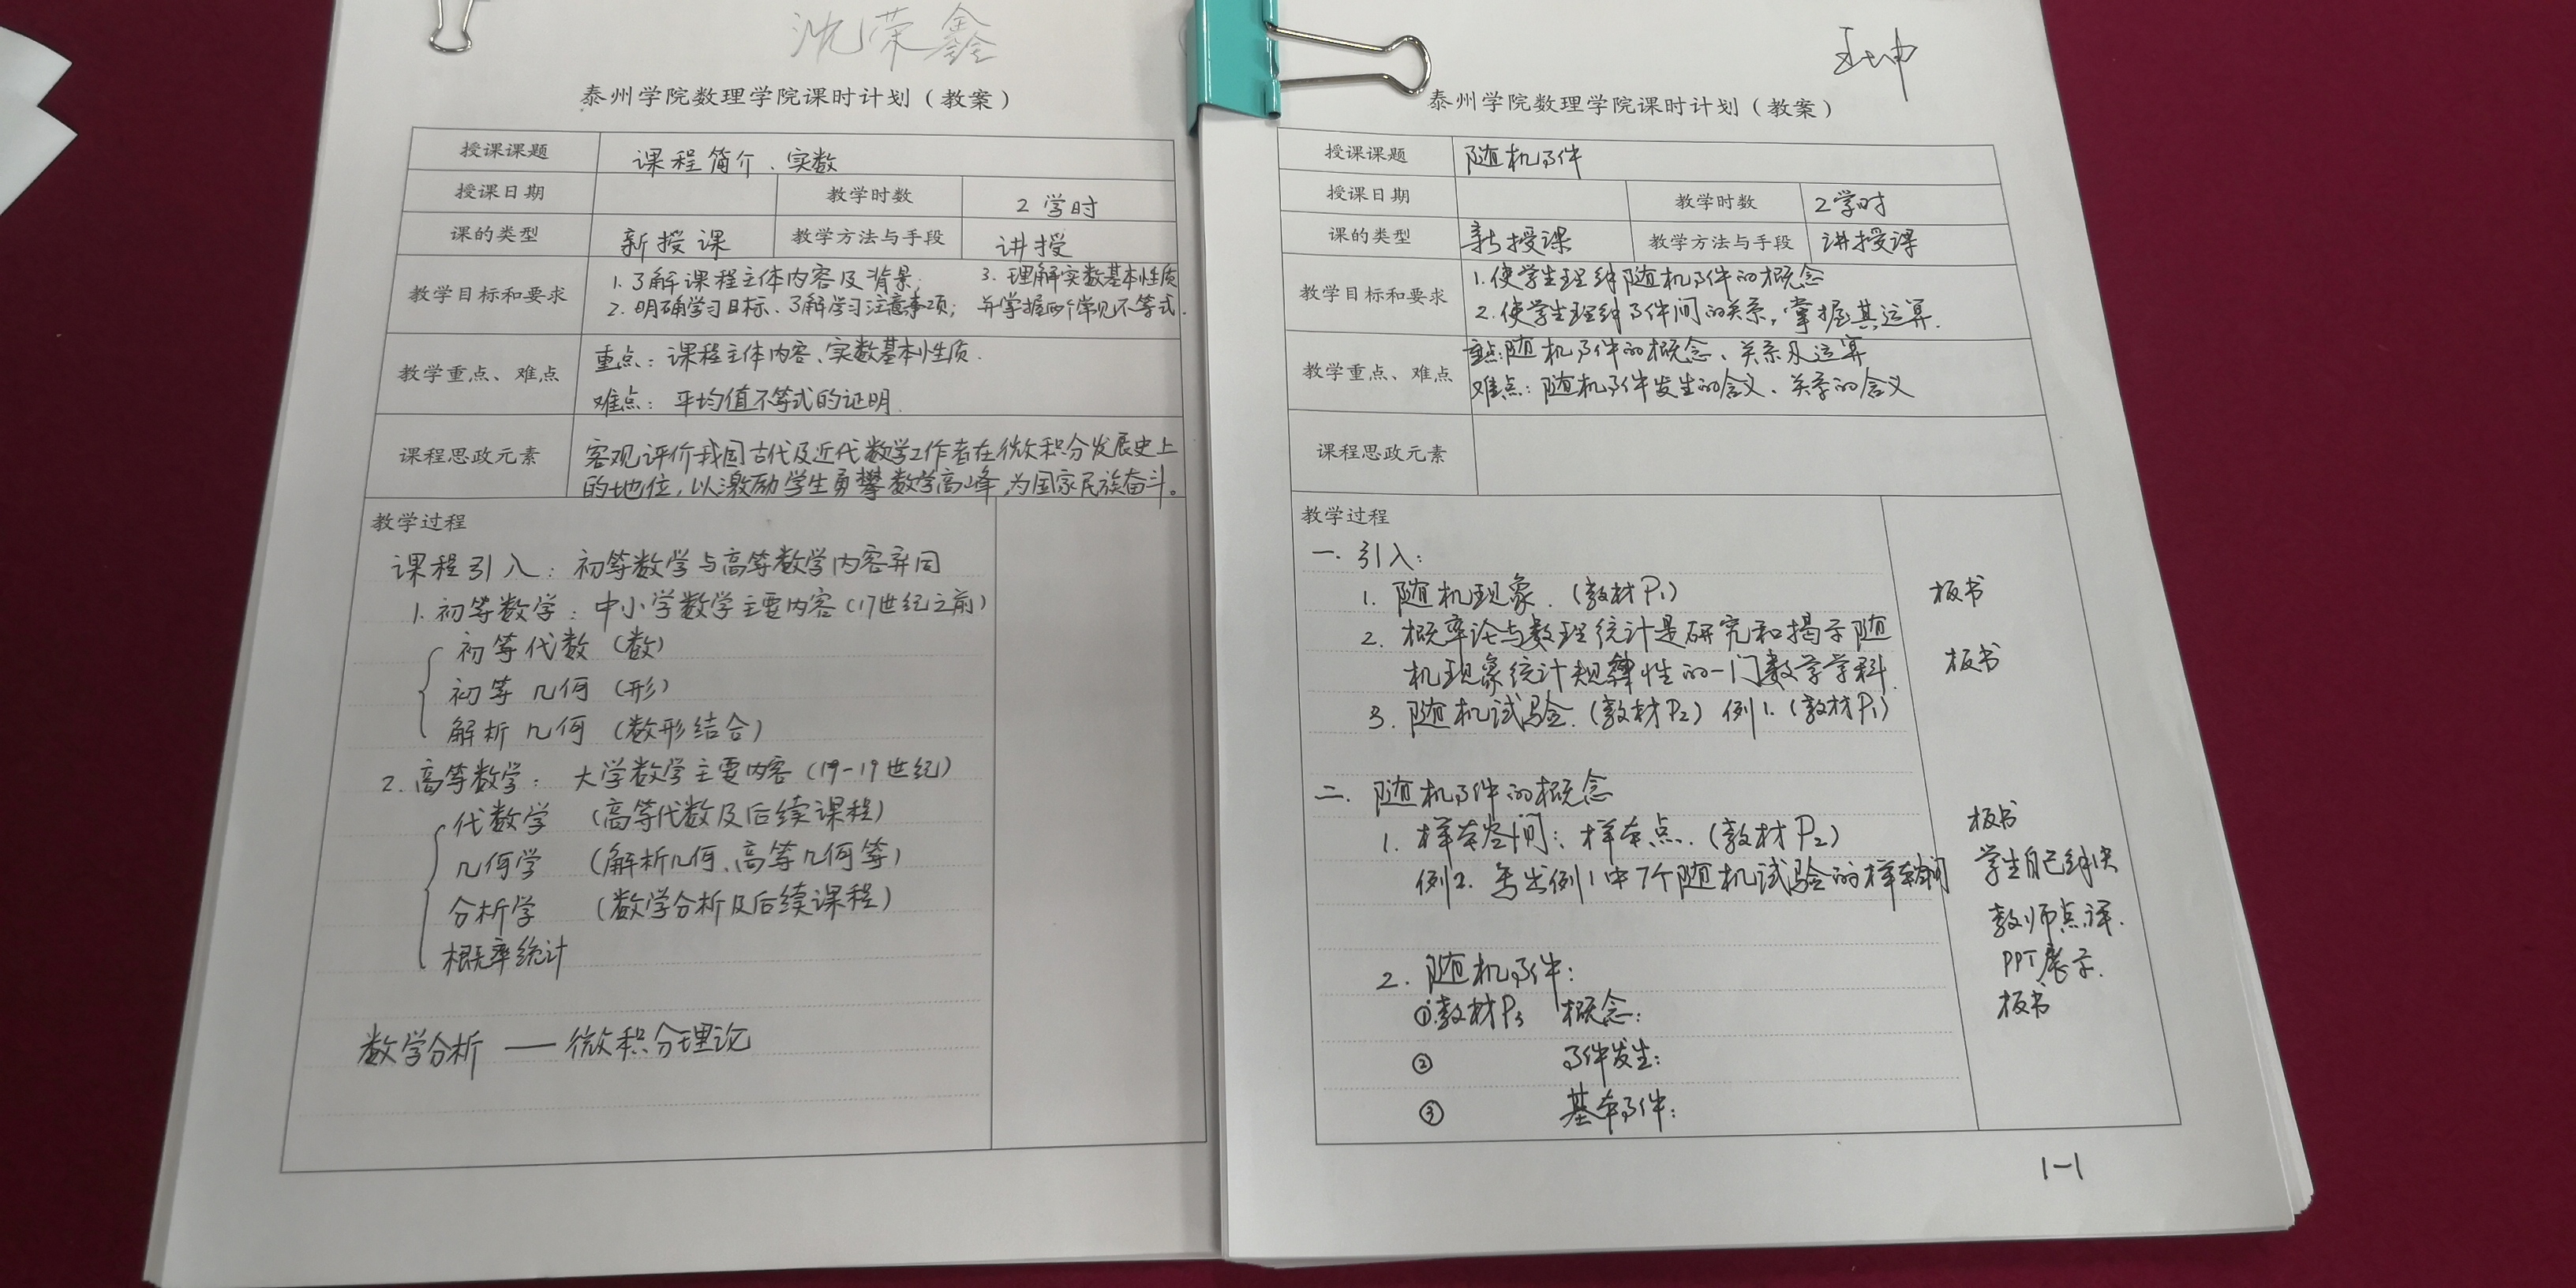 沈荣鑫
泰州学院数理学院课时计划（教案）
授课课题 课程简介、实数
授课日期 教学时数 2学时
课的类型 新授课 教学方法与手段 讲授
教学目标和要求
1. 了解课程主体内容及背景；
2. 明确学习目标、了解学习注意事项；
3. 理解实数基本性质
并掌握两个常见不等式.
教学重点、难点
重点：课程主体内容、实数基本性质.
难点：平均值不等式的证明.
课程思政元素
客观评价我国古代及近代数学工作者在微积分发展史上
的地位，以激励学生勇攀数学高峰，为国家民族奋斗。
教学过程
课程引入：初等数学与高等数学内容异同
1. 初等数学：中小学数学主要内容（17世纪之前）
初等代数（数）
初等几何（形）
解析几何（数形结合）
2. 高等数学：大学数学主要内容（17-19世纪）
代数学（高等代数及后续课程）
几何学（解析几何、高等几何等）
分析学（数学分析及后续课程）
概率统计
数学分析 —— 微积分理论
泰州学院数理学院课时计划（教案）
授课课题 随机事件
授课日期 教学时数 2学时
课的类型 新授课 教学方法与手段 讲授课
教学目标和要求
1. 使学生理解随机事件的概念
2. 使学生理解事件间的关系，掌握其运算.
教学重点、难点
重点：随机事件的概念、关系及运算
难点：随机事件发生的含义、关系的含义
课程思政元素
教学过程
一. 引入：
1. 随机现象.（教材P1） 板书
2. 概率论与数理统计是研究和揭示随
机现象统计规律性的一门数学学科. 板书
3. 随机试验.（教材P2）例1.（教材P1）
二. 随机事件的概念
1. 样本空间：样本点.（教材P2） 板书
例2. 写出例1中7个随机试验的样本空间 学生自己解决
教师点评.
PPT展示.
2. 随机事件：
①教材P3 概念： 板书
② 事件发生：
③ 基本事件：
1-1